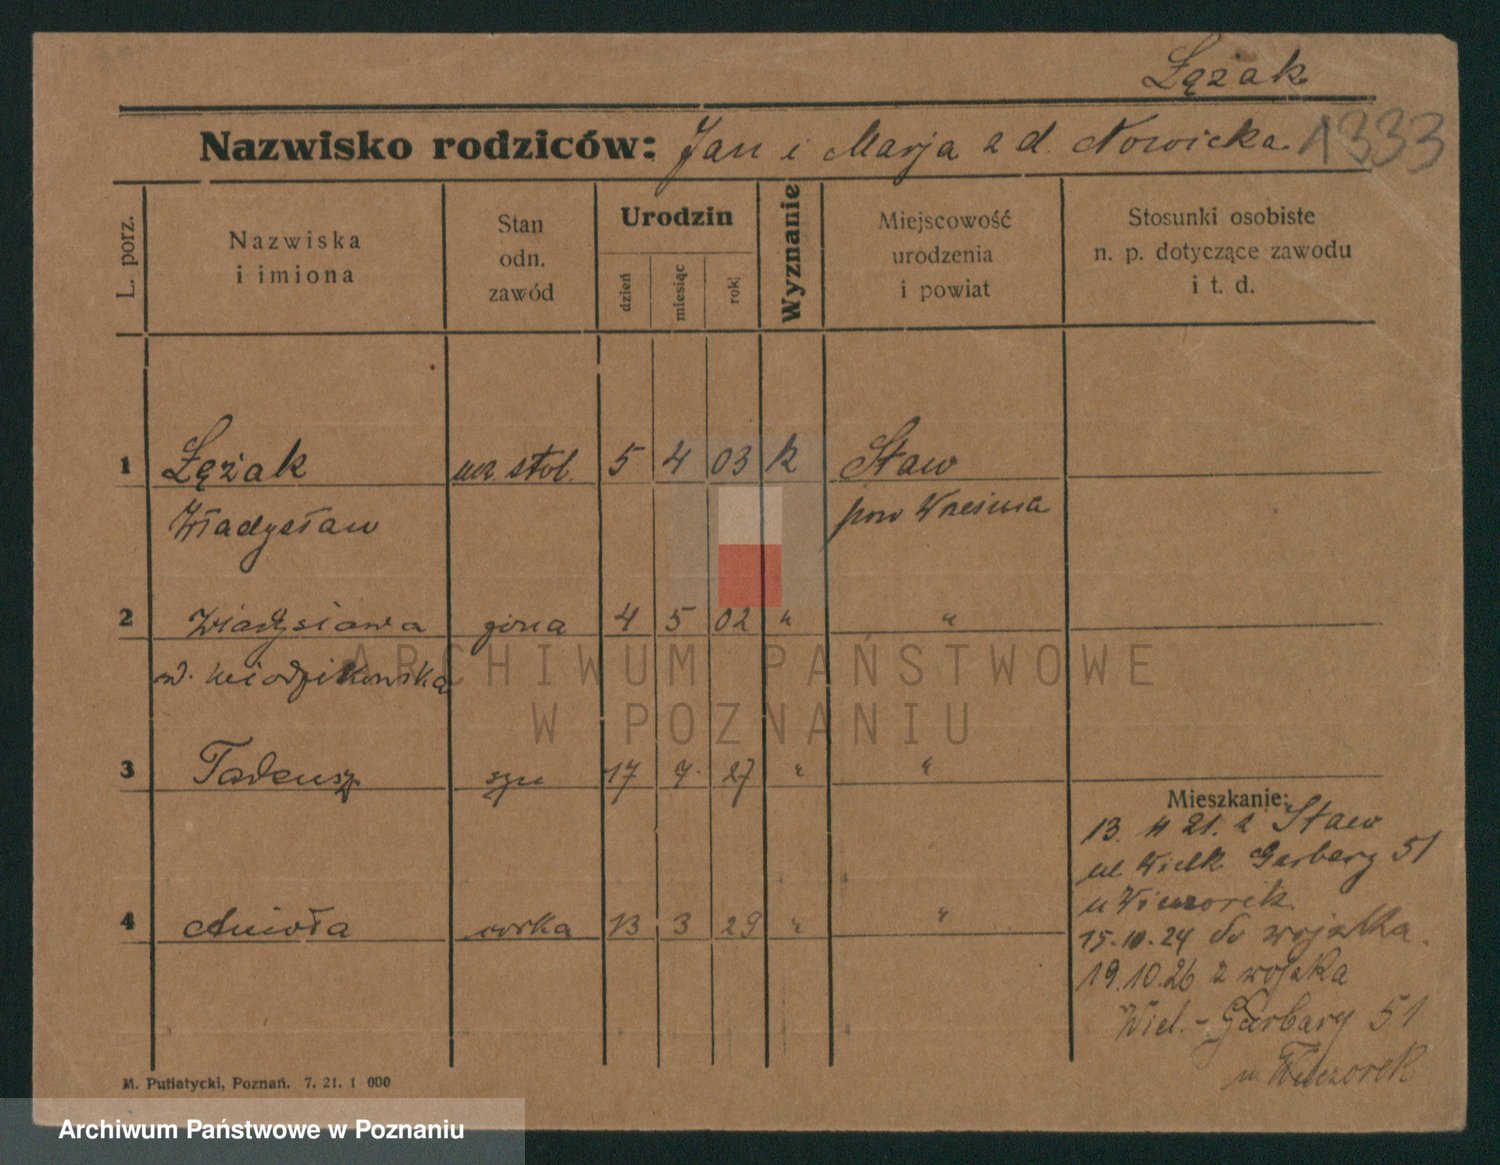 Łężak
Nazwisko rodziców: Jan i Marja z d. Nowicka. 1333
L. porz.
Nazwiska
i imiona
Stan
odn.
zawód
Urodzin
dzień
miesiąc
rok
Wyznanie
Miejscowość
urodzenia
i powiat
Stosunki osobiste
n. p. dotyczące zawodu
i t. d.
1 Łężak ucz. stol. 5 4 03 k Staw
Władysław pow Września
2 Władysława żona 4 5 02 " "
Włodzikowska
3 Tadeusz syn 17 9 27 " "
Mieszkanie:
13. 4 21. z Staw
ul. Wielk Garbary 51
u Wieczorek
4 Aniela córka 13 3 29 " "
15.10.24 do wojska.
19.10.26 z wojska
Wiel. - Garbary 51
u. Wieczorek
M. Putiatycki, Poznań. 7. 21. 1 000
ARCHIWUM PAŃSTWOWE
W POZNANIU
Archiwum Państwowe w Poznaniu